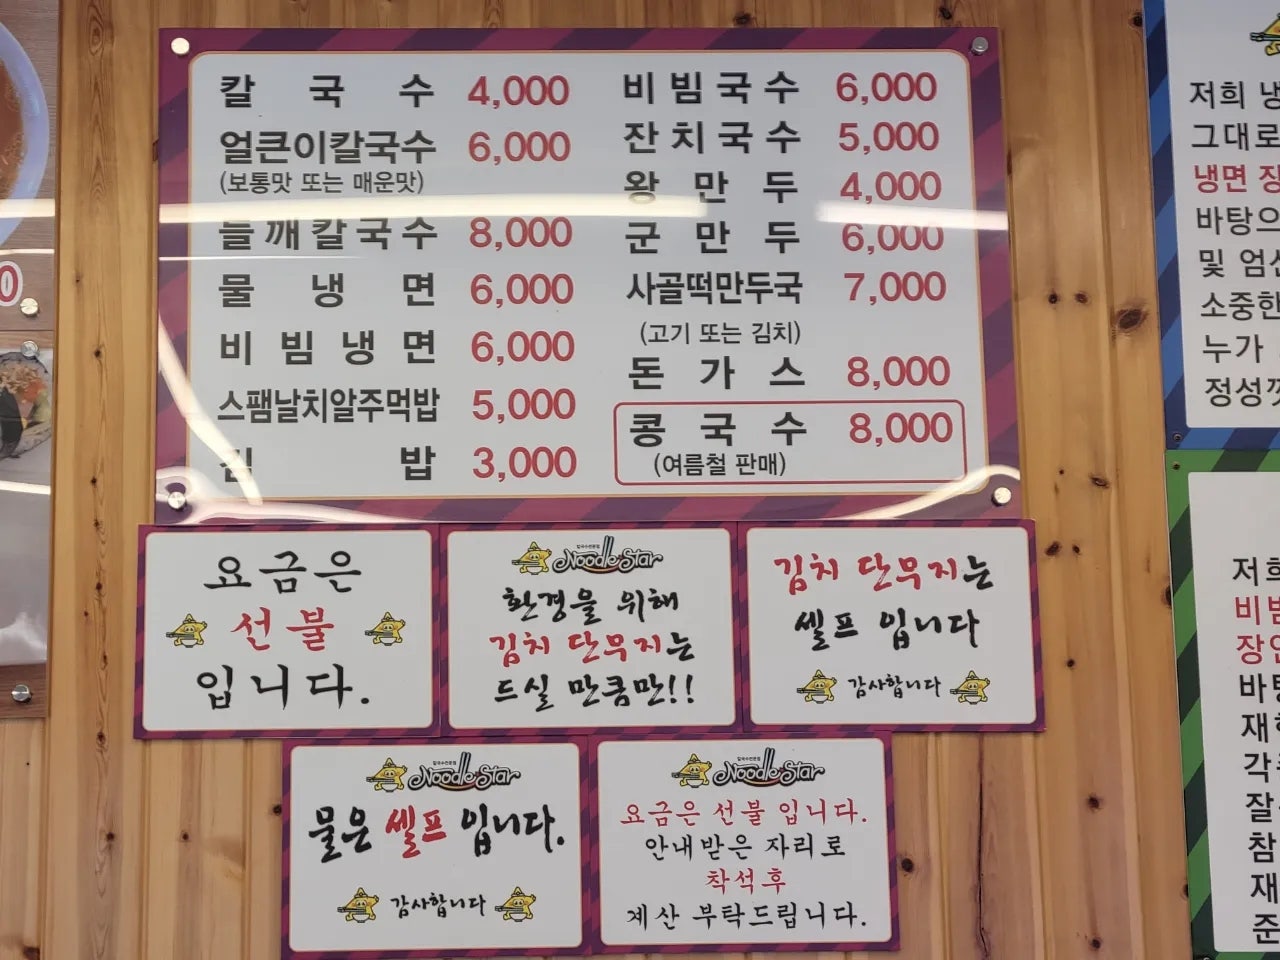 칼국수 4,000
얼큰이칼국수 6,000
(보통맛 또는 매운맛)
들깨칼국수 8,000
물냉면 6,000
비빔냉면 6,000
스팸날치알주먹밥 5,000
김밥 3,000
비빔국수 6,000
잔치국수 5,000
왕만두 4,000
군만두 6,000
사골떡만두국 7,000
(고기 또는 김치)
돈가스 8,000
콩국수 8,000
(여름철 판매)
요금은
선불
입니다.
Noodle Star
환경을 위해
김치 단무지는
드실 만큼만!!
김치 단무지는
셀프 입니다
감사합니다
Noodle Star
물은 셀프 입니다.
감사합니다
Noodle Star
요금은 선불 입니다.
안내받은 자리로
착석후
계산 부탁드립니다.
저희
그대로
냉면
바탕으
및
소중한
누가
0